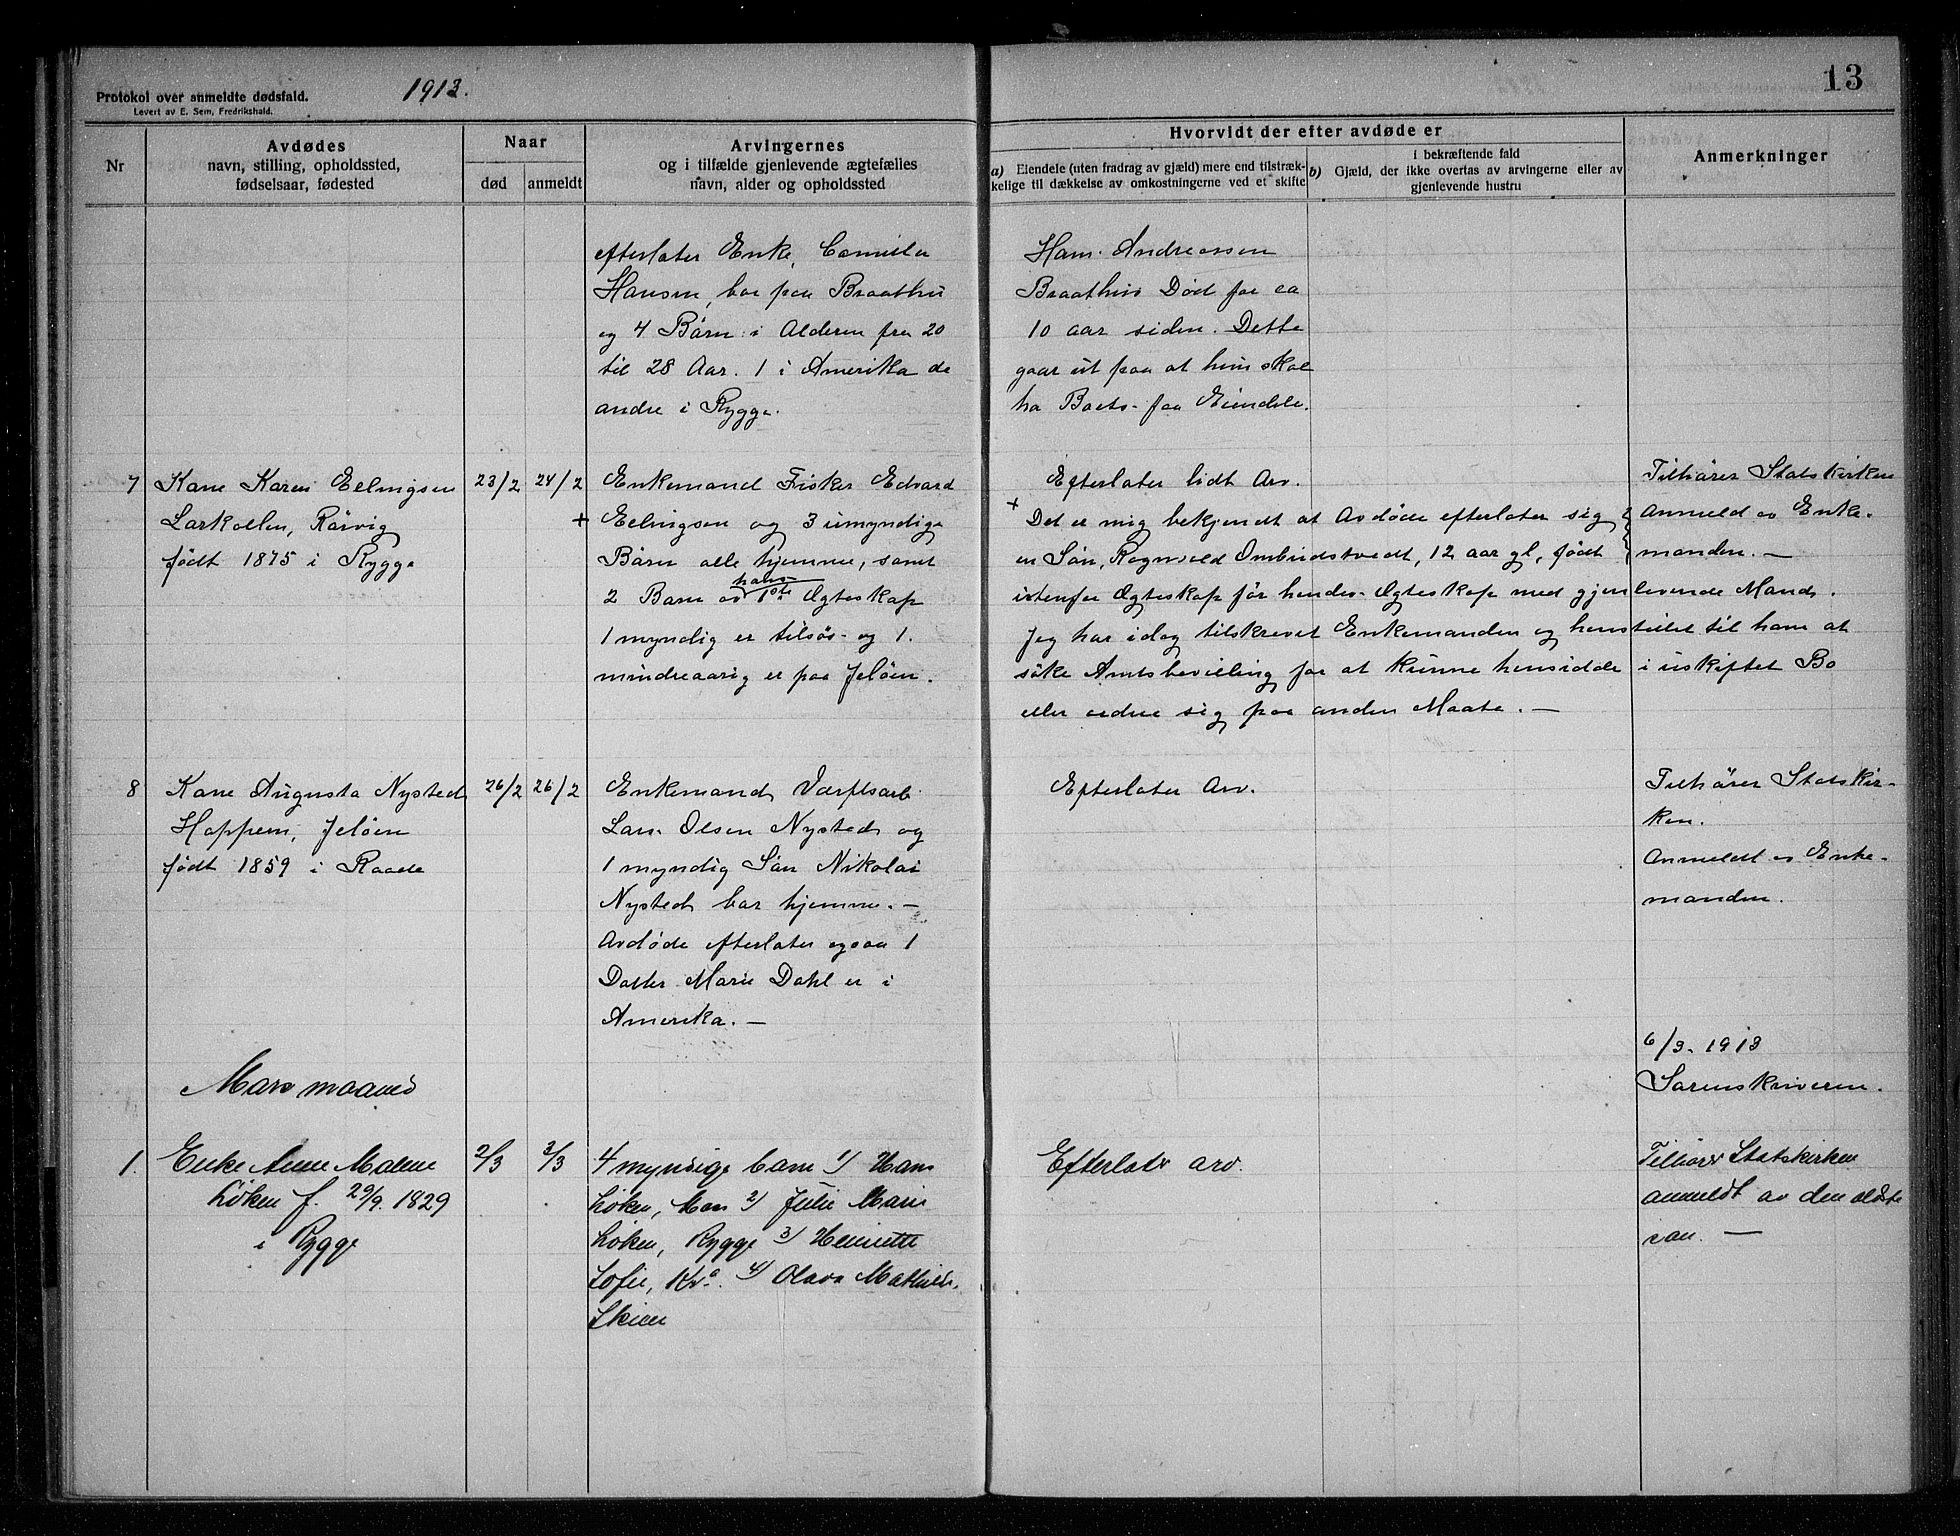 Protokol over anmeldte dødsfald.
Levert av E. Sem, Fredrikshald.
1913.
13
Nr
Avdødes
navn, stilling, opholdssted,
fødselsaar, fødested
Naar
død
anmeldt
Arvingernes
og i tilfælde gjenlevende ægtefælles
navn, alder og opholdssted
Hvorvidt der efter avdøde er
a) Eiendele (uten fradrag av gjæld) mere end tilstræk-
kelige til dækkelse av omkostningerne ved et skifte
i bekræftende fald
b) Gjæld, der ikke overtas av arvingerne eller av
gjenlevende hustru
Anmerkninger
efterlater Enke, Camilla
Hansen, bor paa Braathen
og 4 Børn i Alderen fra 20
til 28 Aar. 1 i Amerika de
andre i Rygge.
Hans Andreassen
Braathen Død for ca
10 aar siden. Dette
gaar ut paa at hun skal
ha Boets faa Eiendele.
7
Kone Karen Ellingsen
Larkollen, Rörvig
født 1875 i Rygge
23/2
24/2
Enkemand Fisker Edvard
+ Ellingsen og 3 umyndige
Börn alle hjemme, samt
2 Barn av hans 1ste Ægteskap
1 myndig er tilsös og 1.
mindreaarig er paa Jelöen.
Efterlater lidt Arv.
+ Det er mig bekjendt at Avdöde efterlater sig
en Sön, Ragnvald Ombudstvedt, 12 aar gl, født
utenfor Ægteskap för hendes Ægteskap med gjenlevende Mand.
Jeg har idag tilskrevet Enkemanden og henstillet til ham at
söke Amtsbevilling for at kunne hensidde i uskiftet Bo
eller ordne sig paa anden Maate. —
Tilhörer Statskirken
Anmeld av Enke-
manden. —
8
Kone Augusta Nysted
Hoppern, Jelöen
født 1859 i Raade
26/2
26/2
Enkemand, Værftsarb.
Lars Olsen Nysted og
1 myndig Sön Nikolai
Nysted bor hjemme. —
Avdöde efterlater ogsaa 1
Datter Marie Dahl er i
Amerika. —
Efterlater Arv.
Tilhörer Statskir-
ken.
Anmeldt av Enke-
manden.
6/3. 1913
Sorenskriveren.
Mars maaned
1.
Enke Anne Malene
Löken f. 29/9. 1829
i Rygge
2/3
3/3
4 myndige barn 1) Hans
Löken, Mos 2) Julie Marie
Löken, Rygge 3) Henriette
Sofie, Kra. 4) Olava Mathilde,
Skien
Efterlater arv.
Tilhörer Statskirken
anmeldt av den ældste
sön. —